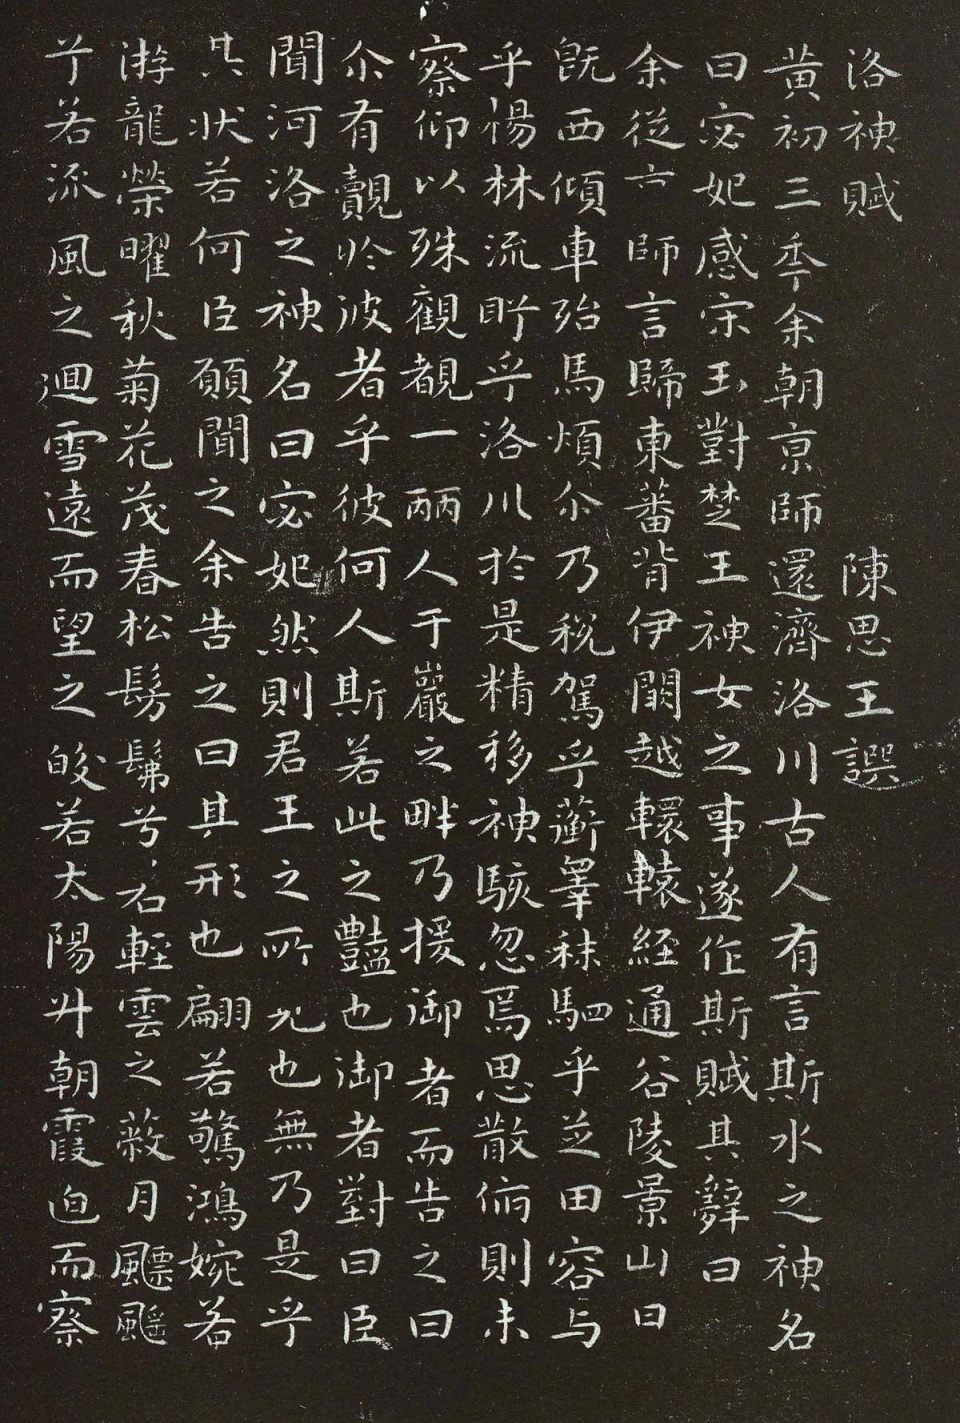 洛神賦 陳思王譔
黄初三秊余朝京師還濟洛川古人有言斯水之神名
曰宓妃感宋玉對楚王神女之事遂作斯賦其辭曰
余從京師言歸東蕃背伊闕越轘轅經通谷陵景山日
既西傾車殆馬煩尒乃税駕乎蘅皋秣駟乎芝田容与
乎楊林流眄乎洛川於是精移神駭忽焉思散俯則未
察仰以殊觀覩一麗人于巖之畔乃援御者而告之曰
尒有覿於彼者乎彼何人斯若此之豔也御者對曰臣
聞河洛之神名曰宓妃然則君王之所見也無乃是乎
其状若何臣願聞之余告之曰其形也翩若驚鴻婉若
游龍榮曜秋菊花茂春松髣髴兮若輕雲之蔽月飄颻
兮若流風之迴雪遠而望之皎若太陽升朝霞迫而察